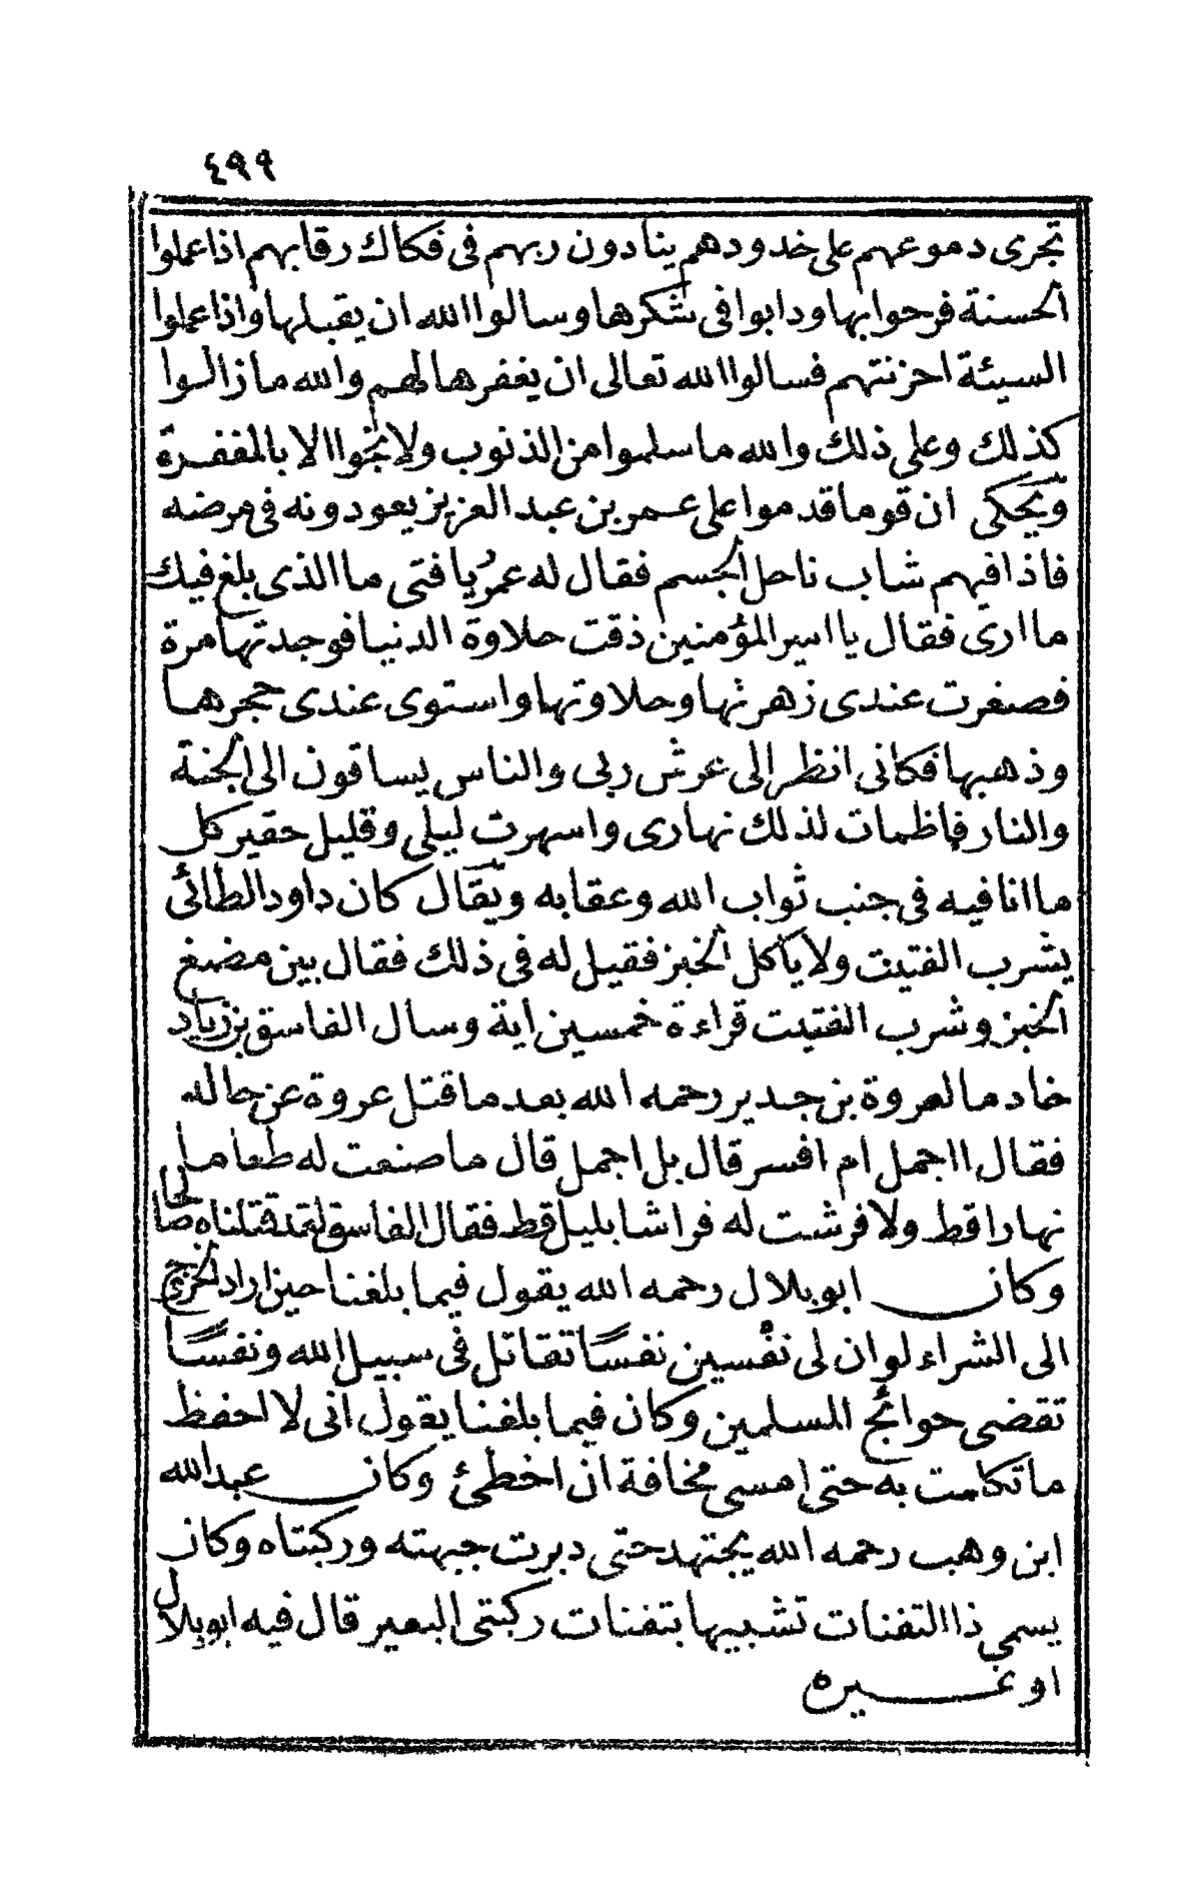 ٤٩٩
تجرى دموعهم على خدودهم ينادون ربهم فى فكاك رقابهم اذا عملوا
الحسنة فرحوا بها ودابوا فى شكرها وسالوا الله ان يقبلها واذا عملوا
السيئة احزنتهم فسالوا الله تعالى ان يغفرها لهم والله ما زالوا
كذلك وعلى ذلك والله ما سلموا من الذنوب ولا نجوا الا بالمغفرة
ويحكى ان قوما قدموا على عمر بن عبد العزيز يعودونه فى مرضه
فاذا فيهم شاب ناحل الجسم فقال له عمر يا فتى ما الذى بلغ فيك
ما ارى فقال يا امير المؤمنين ذقت حلاوة الدنيا فوجدتها مرة
فصغرت عندى زهرتها وحلاوتها واستوى عندى حجرها
وذهبها فكانى انظر الى عرش ربى والناس يساقون الى الجنة
والنار فاظمات لذلك نهارى واسهرت ليلى وقليل حقير كل
ما انا فيه فى جنب ثواب الله وعقابه ويقال كان داود الطائى
يشرب الفتيت ولا ياكل الخبز فقيل له فى ذلك فقال بين مضغ
الخبز وشرب الفتيت قراءة خمسين اية وسال الفاسق بن زياد
خادما لعروة بن جدير رحمه الله بعد ما قتل عروة عن حاله
فقال ااجمل ام افسر قال بل اجمل قال ما صنعت له طعاما
نهارا قط ولا فرشت له فراشا بليل قط فقال الفاسق لقد قتلناه صالحا
وكان ابو بلال رحمه الله يقول فيما بلغنا حين اراد الخروج
الى الشراء لو ان لى نفسين نفسًا تقاتل فى سبيل الله ونفسًا
تقضى حوائج المسلمين وكان فيما بلغنا يقول انى لا احفظ
ما تكلمت به حتى امسى مخافة ان اخطئ وكان عبد الله
ابن وهب رحمه الله يجتهد حتى دبرت جبهته وركبتاه وكان
يسمى ذا الثفنات تشبيها بثفنات ركبتى البعير قال فيه ابو بلال
او غيره